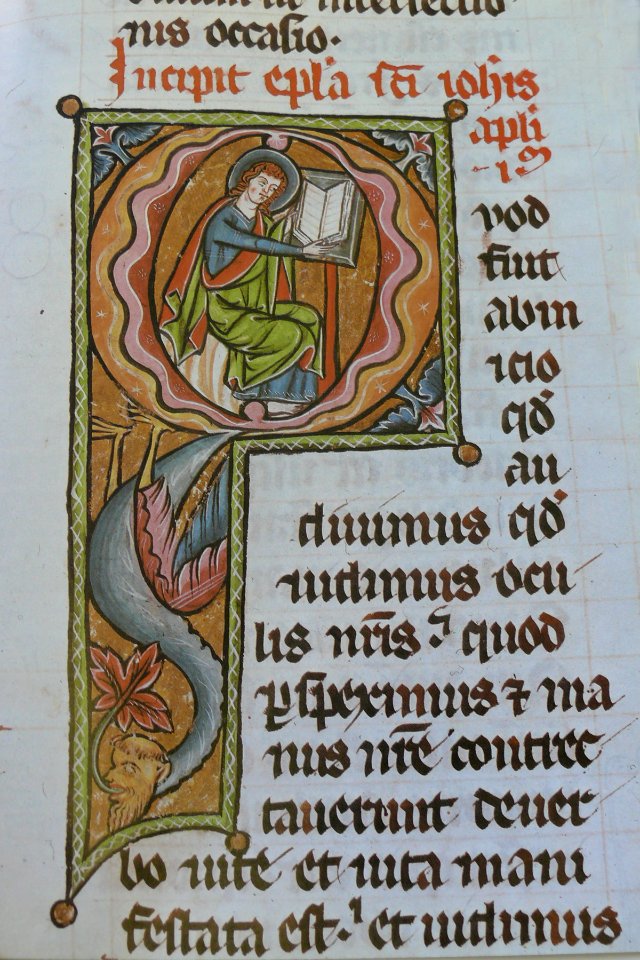 nis occasio.
Incipit epl̃a sc̃i ioh̃is
apl̃i
·i᷒
vod
fuit
ab in
icio
qd̕
au
diuimus qd̕
uidimus ocu
lis nr̃is ⁊ quod
ꝑspeximus ⁊ ma
nus nr̃e contrec
tauerunt de uer
bo uite et uita mani
festata est. et uidimus